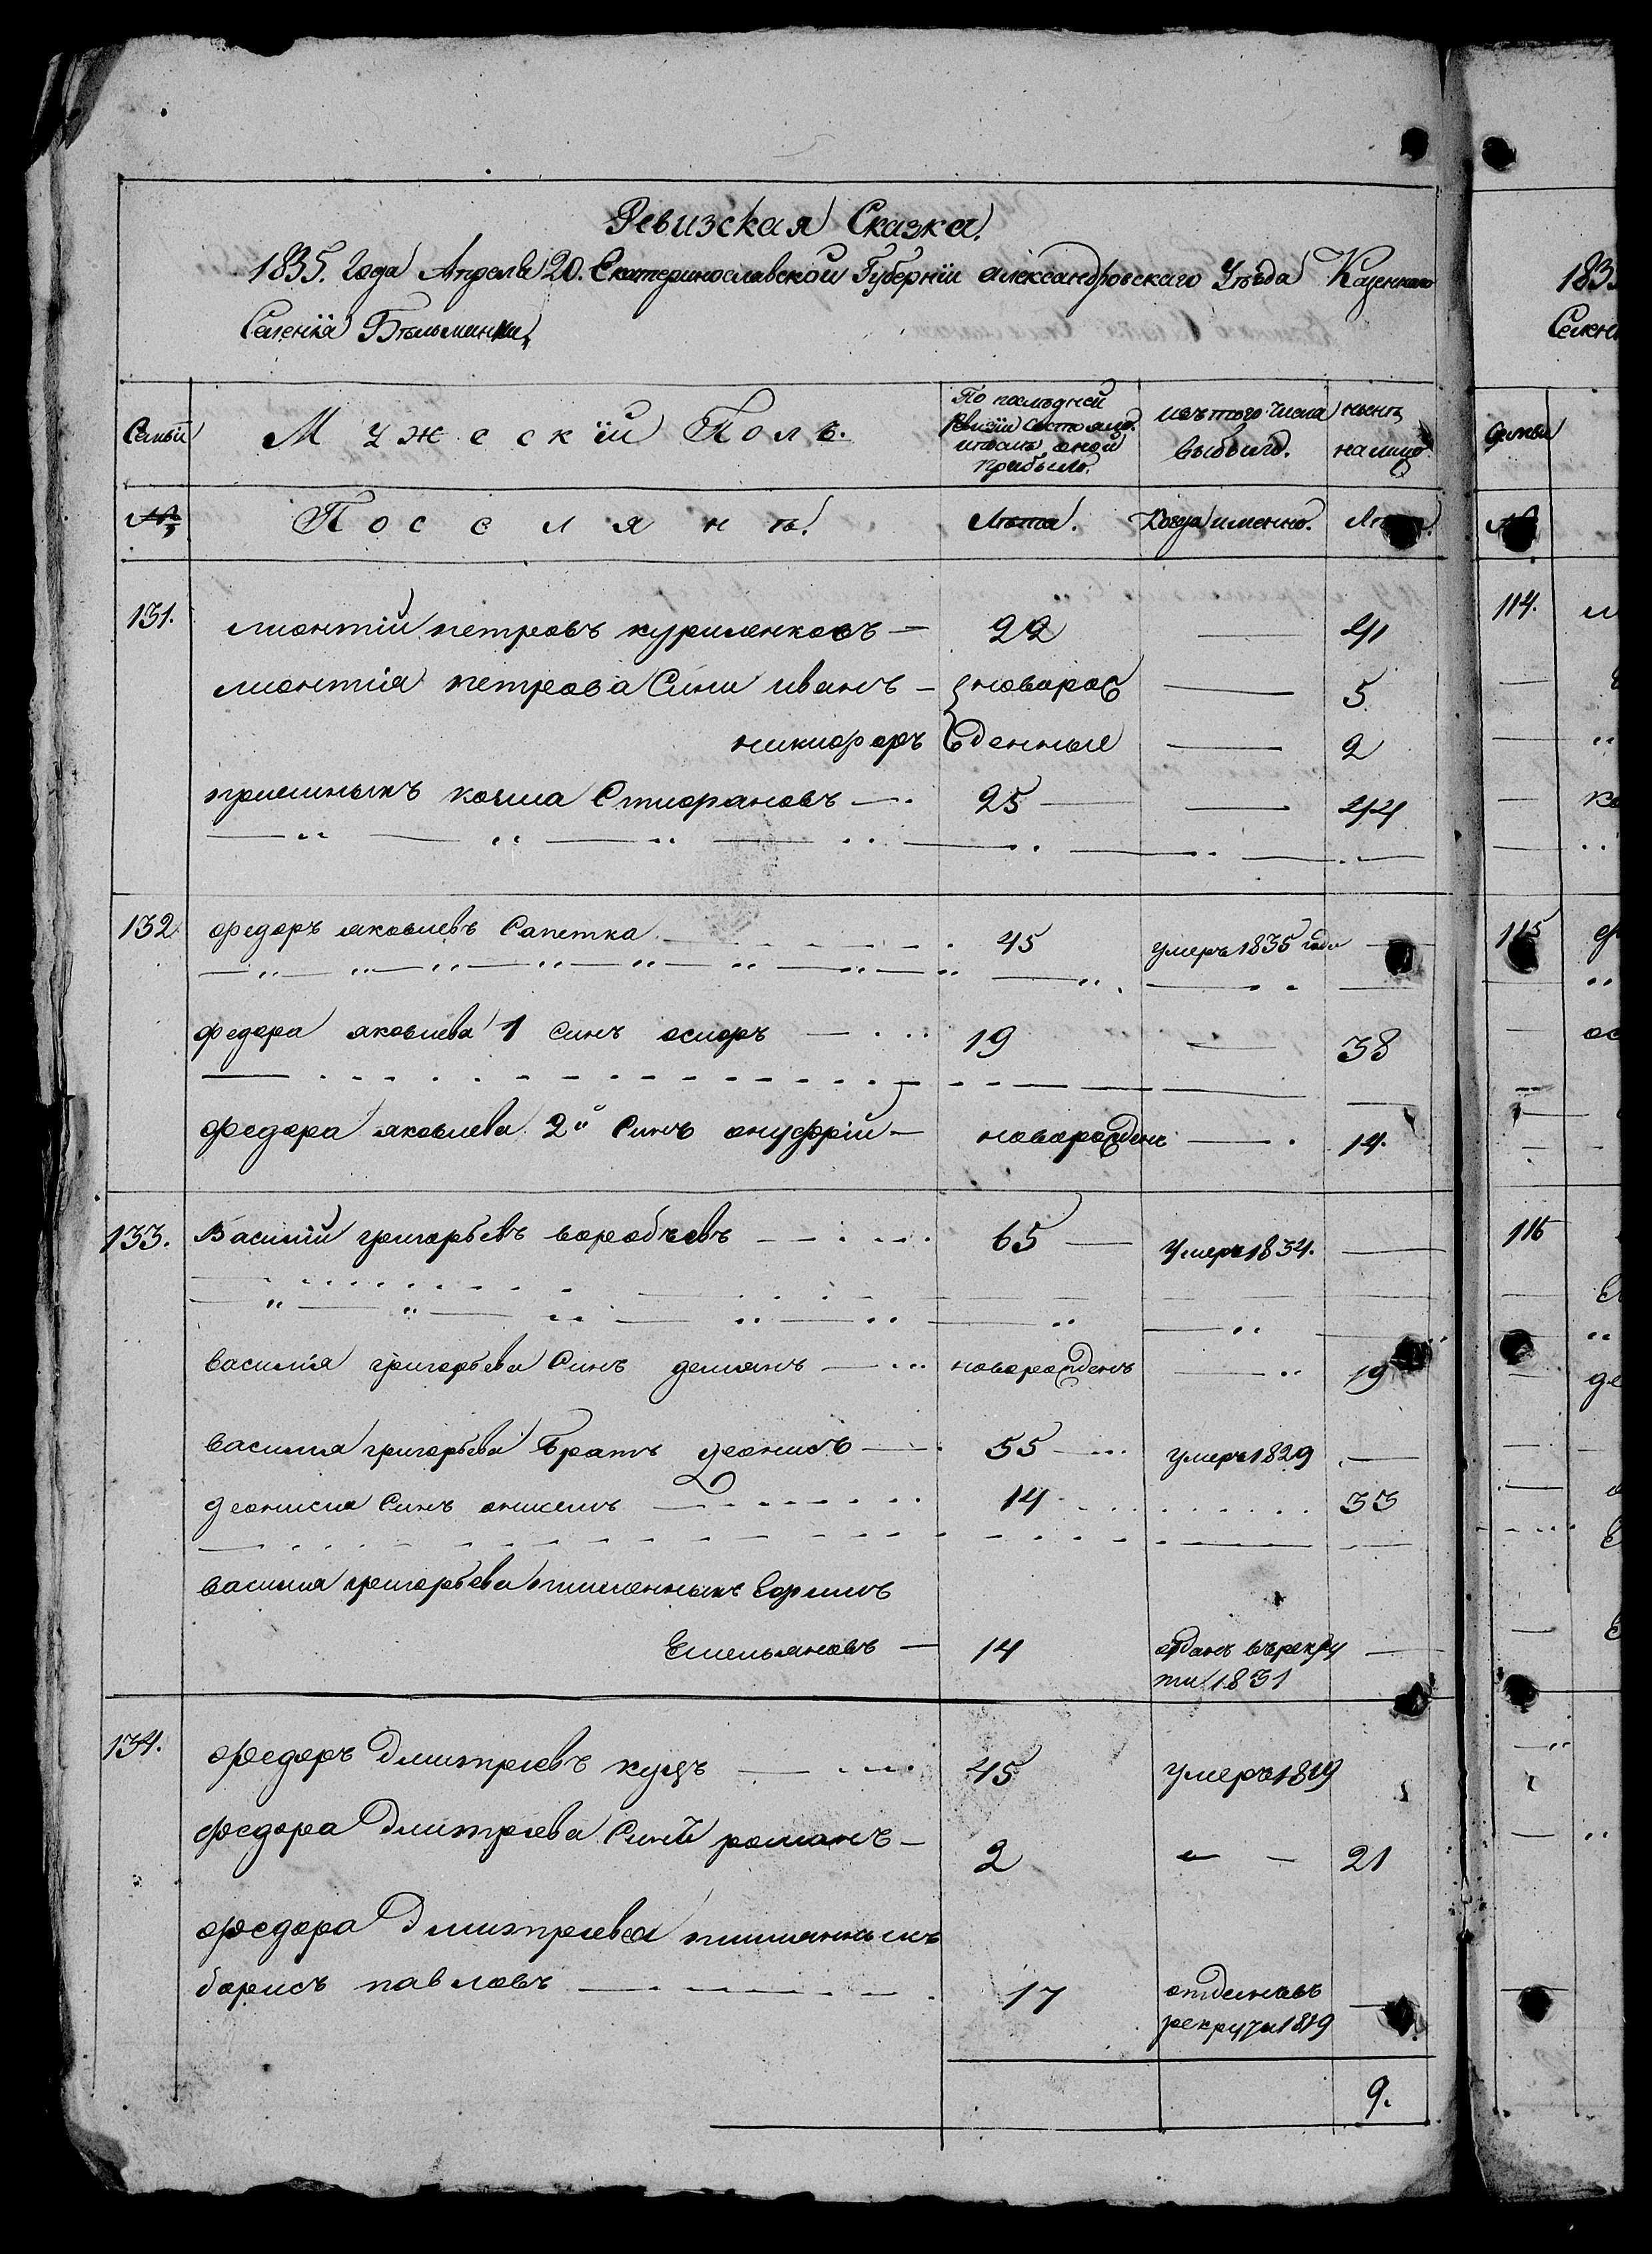 Ревизская Сказка.
1835. Года Апреля 20. Екатеринославской Губернїи александровскаго Уѣзда Казеннаго
Селенїя Бѣльманки,
Семьи
Мужескїй Полъ.
По послѣдней
Ревизїи состояло
и послѣ оной
прибыло.
изъ того числа
выбыло.
нынѣ
на лицо
№
Поселянѣ.
Лѣта.
Когда именно.
131.
лионтїй петровъ куриленковъ — 22 — 41
лионтїя петрова Сини иванъ — новорож — 5
никифоръ денные — 2
приемишъ козма Стифановъ — 25 — 44
132
федоръ яковлевъ Сапетка 45 умеръ 1835 года —
федора яковлева 1 синъ осифъ — 19 — 38
федора яковлева 2й Синъ онуфрїй — новорожденъ — 14.
133.
Василїй григорьевъ воробъевъ 65 — Умеръ 1834. —
василїя григорьева Синъ демянъ — новорожденъ — 19
василия григорьева Братъ деонисъ — 55 умеръ 1829 —
деонисия Синъ оникей 14 33
василия григорьева племенныкъ
Емельяновъ — 14 отданъ въ рекру —
ти 1831
134.
федоръ Дмитриевъ куцъ — 45 умеръ 1819
федора Дмитриева Синъ романъ — 2 — 21
федора Дмитриева племянныкъ
борисъ павловъ — 17 отданъ въ —
рекрути 1819
9.
183
Селен
Семьи
114.
115
116